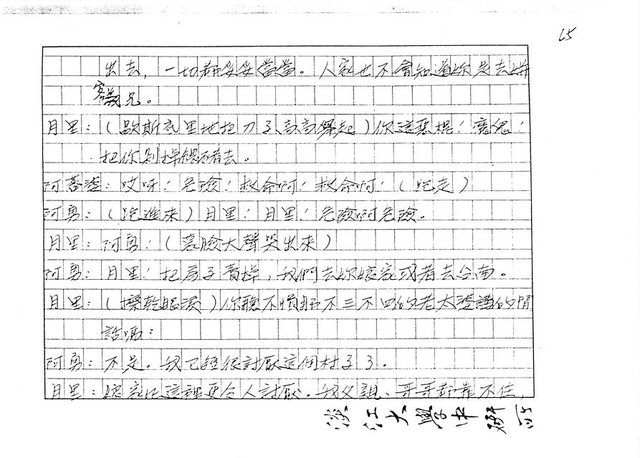 15
出去，一切都妥妥當當。人家也不會知道你是去
客兄。
月里：（歇斯底里地把刀子高高舉起）你這惡棍！魔鬼！
把你剁掉
阿菩婆：哎呀！危險！救命啊！救命啊！（跑走）
阿勇：（跑進來）月里！月里！危險啊危險。
月里：阿勇！（蒙臉大聲哭出來）
阿勇：月里！把房子賣掉，我們去你娘家或者去台南。
月里：（擦乾眼淚）你聽不慣那不三不四的老太婆講的
話嗎？
阿勇：不是。我已經很討厭這個村子了。
月里：這裡更令人討厭。我父親、哥哥都靠不住，
淡江大學中